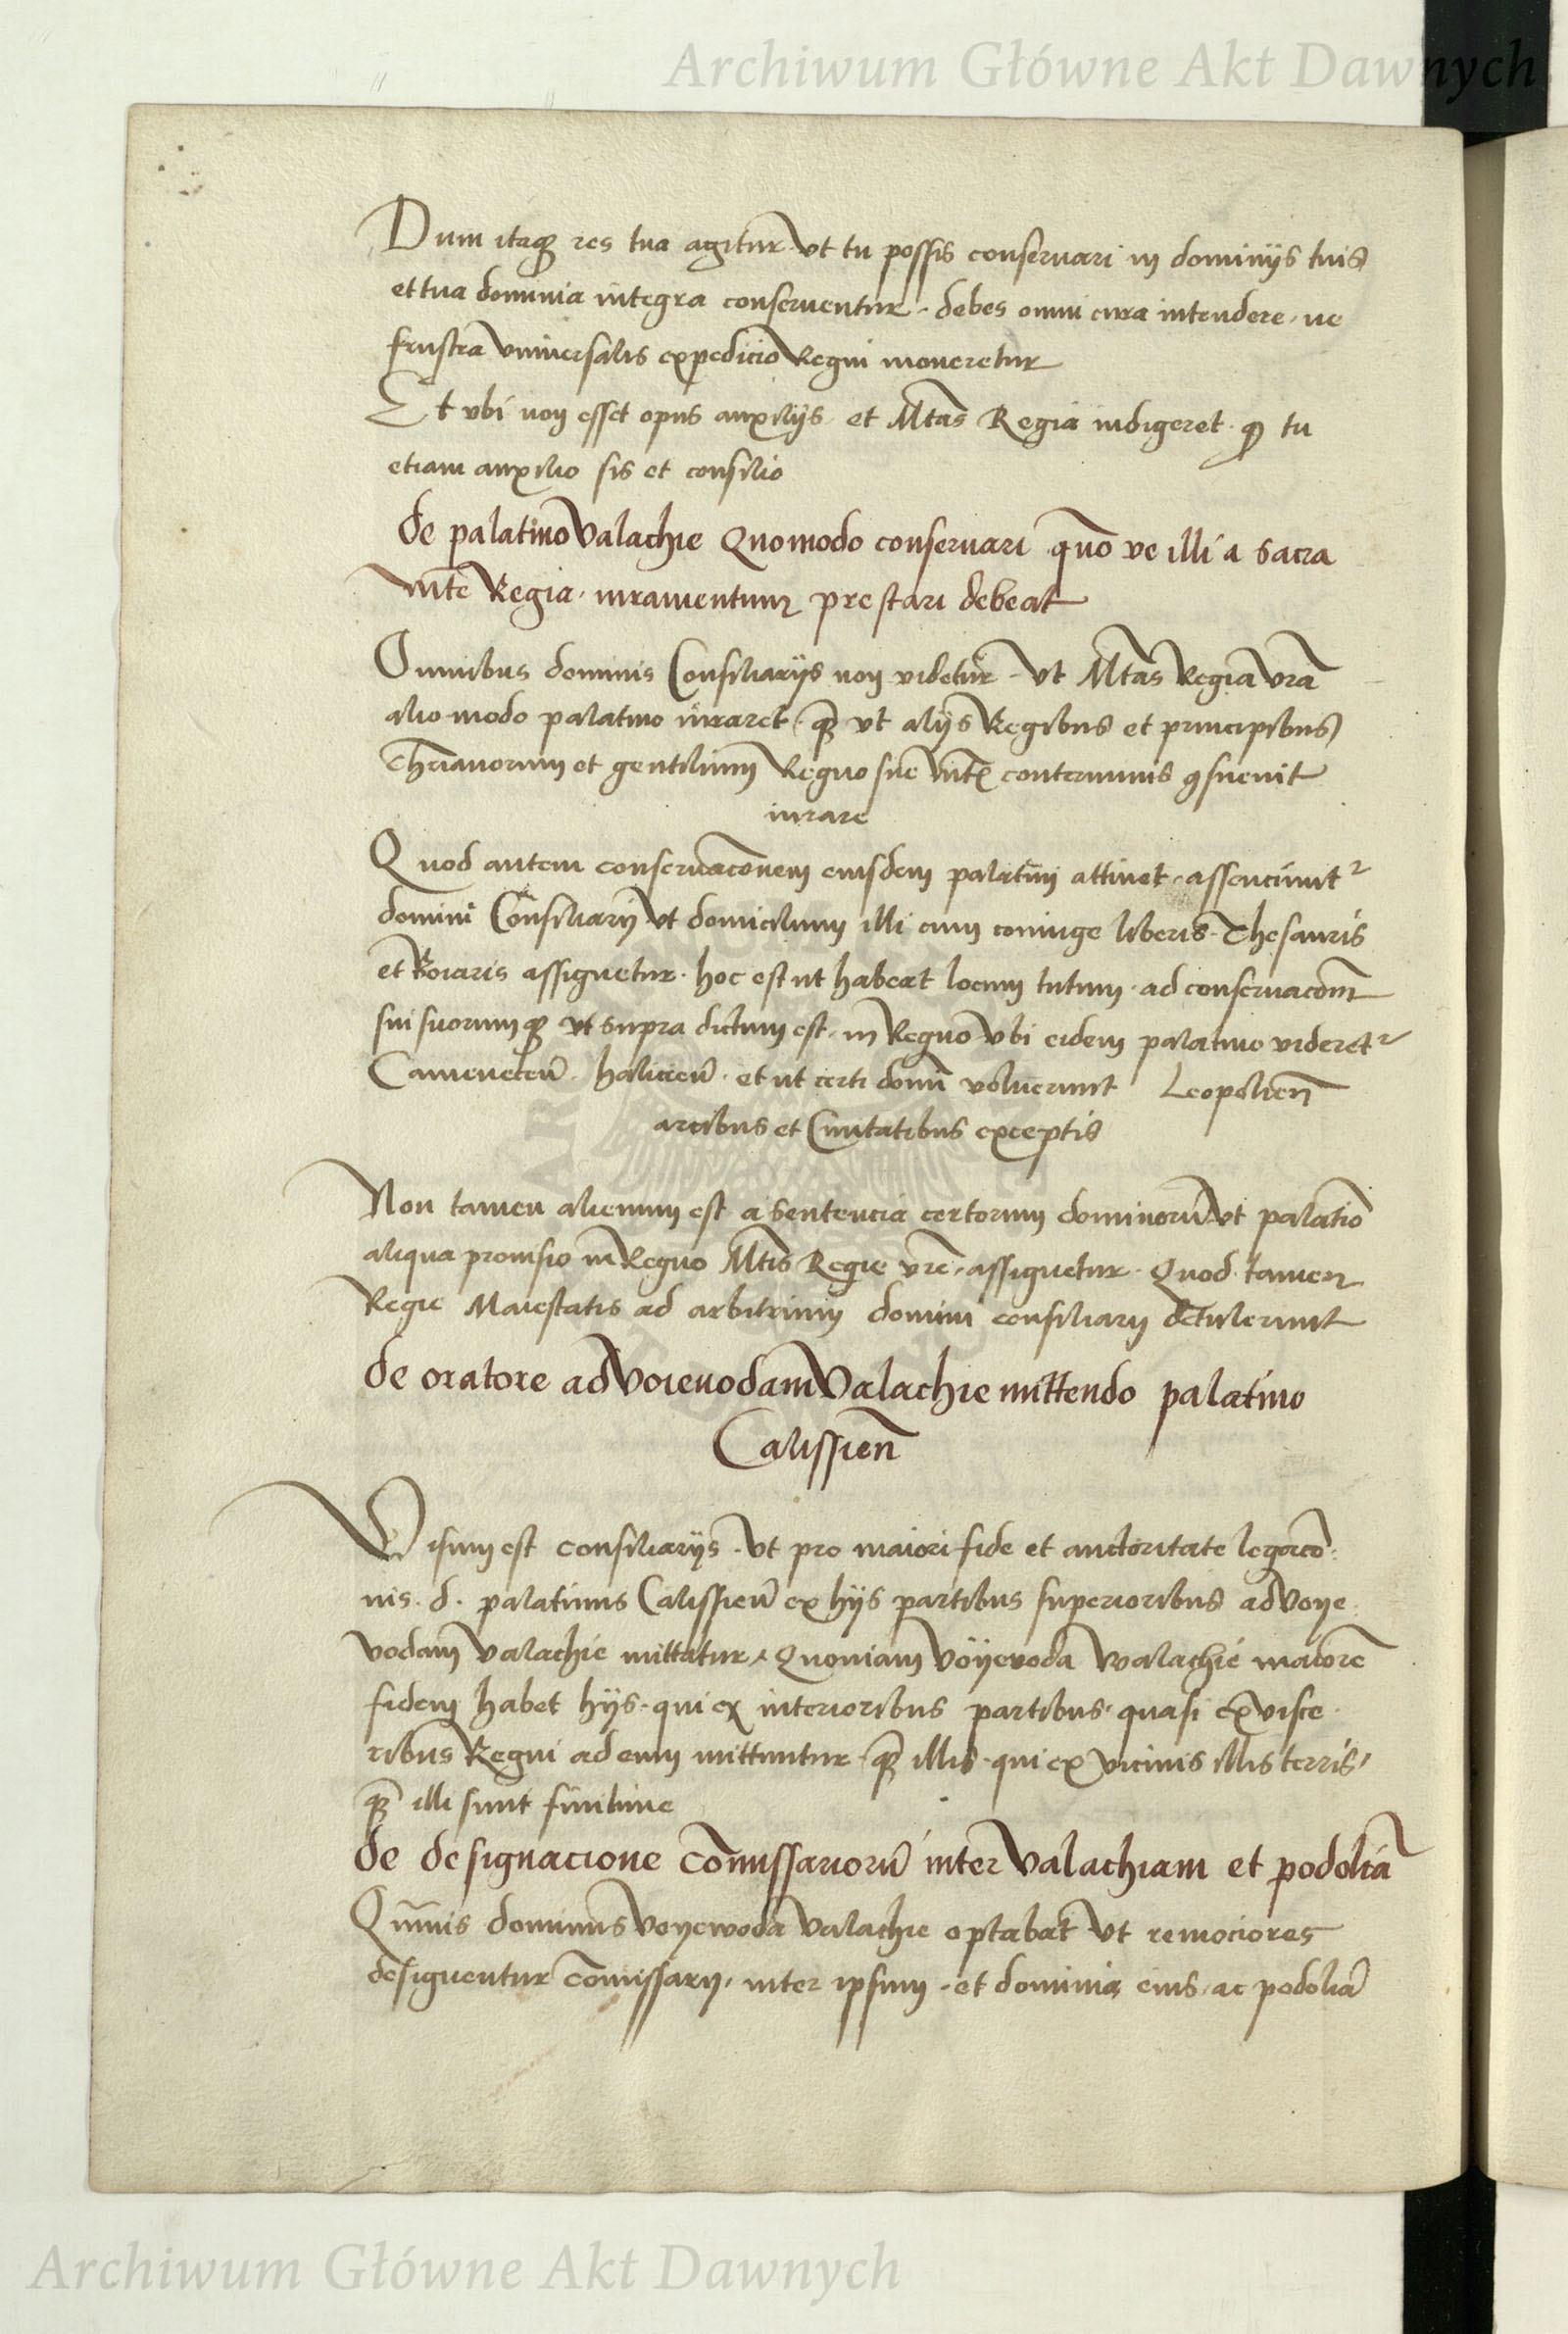 Archiwum Główne Akt Dawnych
Dum itaqꝫ res tua agitur vt tu possis conseruari in dominijs tuis
et tua dominia integra conseruentur · debes omni cura intendere · ne
frustra vniuersalis expedicio Regni moueretur
Et vbi non esset opus auxilijs et Mtas Regia indigeret · qꝫ tu
etiam auxilio sis et consilio
de palatino Valachie Quomodo conseruari quō ve illi a Sacra
Mte Regia · iuramentum prestari debeat
Omnibus dominis Consiliarijs non videtur · vt Mtas Regia vrā
alio modo palatino iuraret · qꝫ vt alijs Regibus et principibus
Chrianorum et gentilium Regno sue Mtꝭ conterminis ꝯsueuit
iurare
Quod autem conseruacōnem eiusdem palatini attinet · assenciunt
domini Consiliarij vt domicilium illi cum coniuge liberis · Thesauris
et Boiaris assignetur · hoc est ut habeat locum tutum · ad conseruacōm
sui suorumqꝫ vt supra dictum est · in Regno vbi eidem palatino videret²
Camenecen̄ · halicien̄ · et ut certi domī voluerunt Leopolien̄
arcibus et Ciuitatibus exceptis
Non tamen alienum est a sentencia certorum dominorū vt palatīo
aliqua prouisio in Regno Mtis Regie vrē · assignetur · Quod tamen
Regie Maiestatis ad arbitrium domini consiliarij detulerunt
de oratore ad Voieuodam Valachie mittendo palatino
Calissien̄
Visum est consiliarijs · vt pro maiori fide et auctoritate legacō
nis · d · palatinus Calissien̄ ex hijs partibus superioribus ad Voye
vodam Valachie mittatur · Quoniam Voyevoda Walachie maiorē
fidem habet hijs · qui ex interioribus partibus · quasi ex visce
ribus Regni ad eum mittuntur · qꝫ illis · qui ex vicinis illis terris ·
qꝫ illi sunt finitime
de designacione Cōmissariorū inter Valachiam et podoliā
Quāuis dominus Voyewoda Valachie optabat vt remociores
designentur Cōmissarij · inter ipsum · et dominia eius · ac podoliā
Archiwum Główne Akt Dawnych